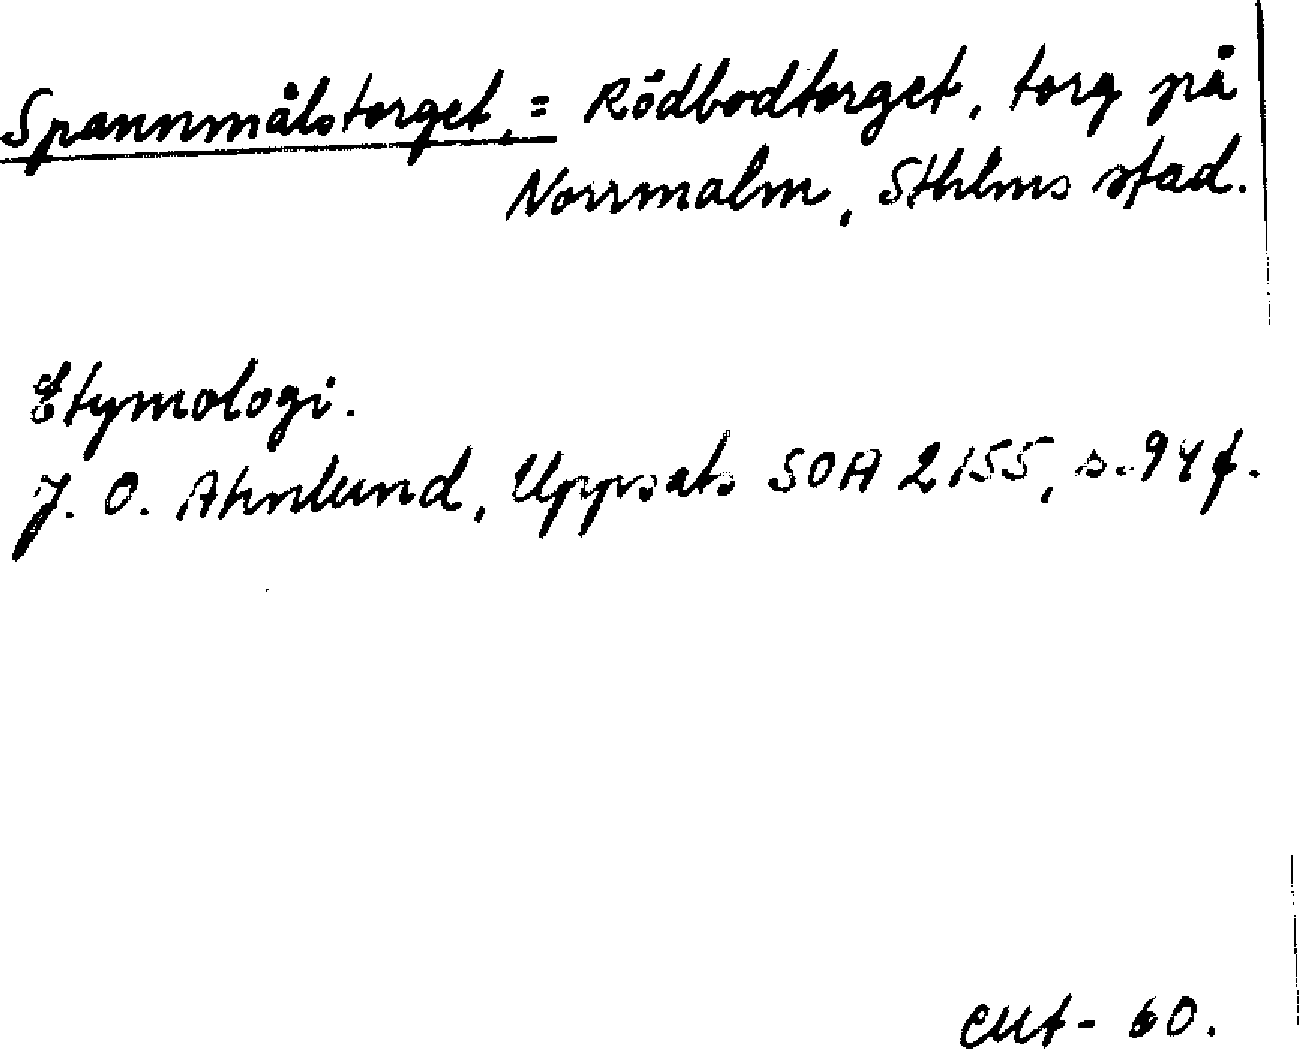 Spannmålstorget, = Rödbodtorget, torg på
Norrmalm, Sthlms stad.
Etymologi.
J. O. Ahnlund, Uppsats SOA 2155, s. 94 f.
60.